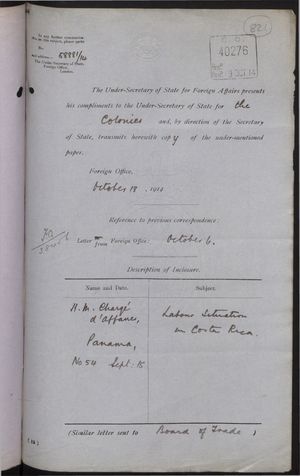 In any further communication
on this subject, please quote
No. 58881/14
and address—
The Under-Secretary of State,
Foreign Office,
London.
821
40276
13 OCT 14
The Under-Secretary of State for Foreign Affairs presents
his compliments to the Under-Secretary of State for the
Colonies and, by direction of the Secretary
of State, transmits herewith copy of the under-mentioned
paper.
Foreign Office,
October 13, 1914
Reference to previous correspondence:
Letter from Foreign Office: October 6.
Description of Inclosure.
Name and Date. Subject.
H. M. Chargé d'Affaires,
Panama,
No 54 Sept: 15
Labour Situation
in Costa Rica.
(Similar letter sent to Board of Trade )